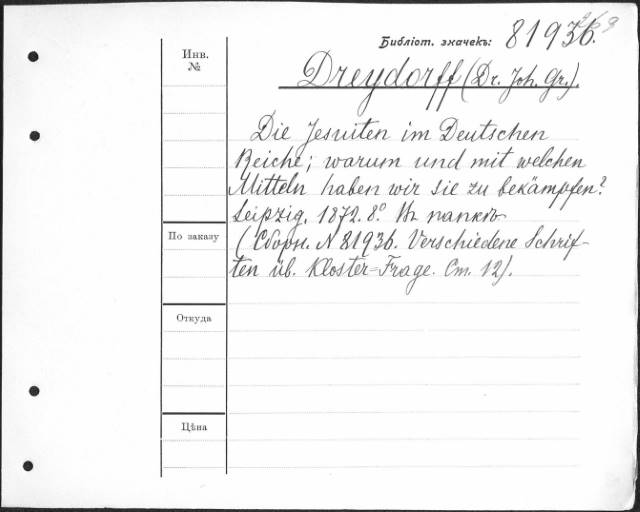 Библіот. значекъ: 81936.
Инв.
№
Dreydorff (Dr. Joh. Gr.).
Die Jesuiten im Deutschen
Reiche; warum und mit welchen
Mitteln haben wir sie zu bekämpfen?
Leipzig. 1872. 8º. Въ папкѣ
По заказу
(Сборн. № 81936. Verschiedene Schrif-
ten üb. Kloster=Frage. Ст. 12).
Откуда
Цѣна